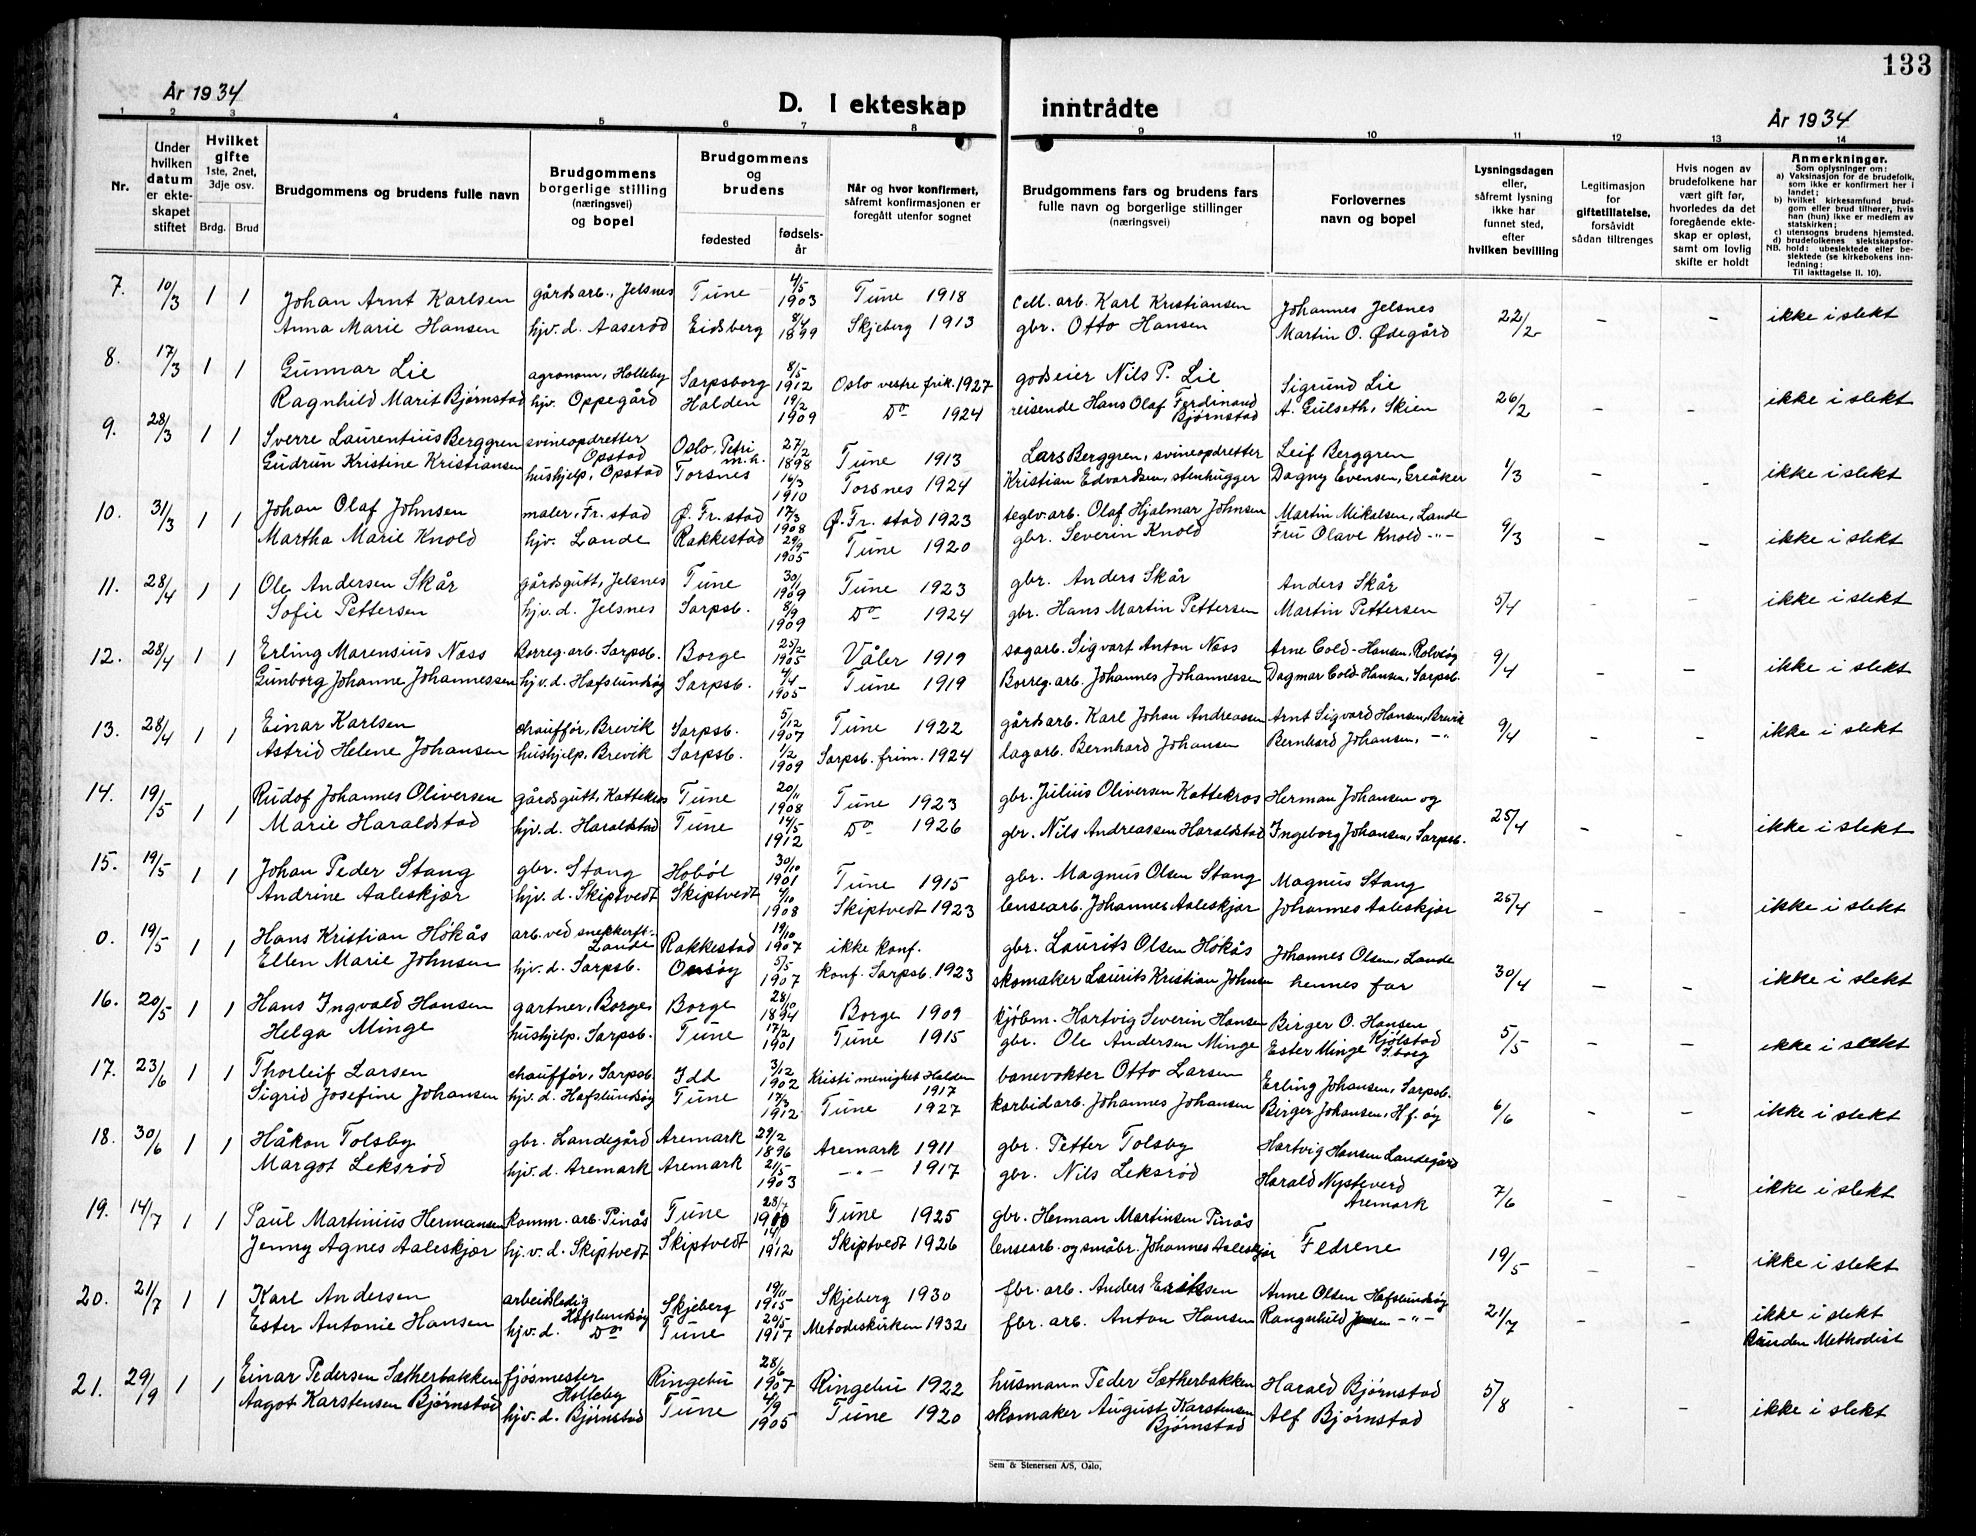 133
År 1934
D. I ekteskap inntrådte
År 1934
1 2 3 4 5 6 7 8 9 10 11 12 13 14
Nr.
Under hvilken datum er ekteskapet stiftet
Hvilket gifte 1ste, 2net, 3dje osv.
Brdg. Brud
Brudgommens og brudens fulle navn
Brudgommens borgerlige stilling (næringsvei) og bopel
Brudgommens og brudens
fødested
fødselsår
Når og hvor konfirmert, såfremt konfirmasjonen er foregått utenfor sognet
Brudgommens fars og brudens fars fulle navn og borgerlige stillinger (næringsvei)
Forlovernes navn og bopel
Lysningsdagen eller, såfremt lysning ikke har funnet sted, efter hvilken bevilling
Legitimasjon for giftetillatelse, forsåvidt sådan tiltrenges
Hvis nogen av brudefolkene har vært gift før, hvorledes da det foregående ekteskap er opløst, samt om lovlig skifte er holdt
Anmerkninger.
Som oplysninger om:
a) Vaksinasjon for de brudefolk, som ikke er konfirmert her i landet;
b) hvilket kirkesamfund brudgom eller brud tilhører, hvis han (hun) ikke er medlem av statskirken;
c) utensogns brudens hjemsted.
d) brudefolkenes slektskapsforhold: ubeslektede eller beslektede (se kirkebokens innledning:
NB.
Til iakttagelse II. 10).
7. 10/3 1 1 Johan Arnt Karlsen gårdsarb., Jelsnes Tune 4/5 1903 Tune 1918 Cell. arb. Karl Kristiansen Johannes Jelsnes 22/2 - - ikke i slekt
Anna Marie Hansen hjv. d. Aaserød Eidsberg 8/4 1899 Skjeberg 1913 gbr. Otto Hansen Martin O. Ødegård
8. 17/3 1 1 Gunnar Lie agronom, Holleby Sarpsborg 8/5 1912 Oslo vestre frik. 1927 godseier Nils P. Lie Sigrund Lie 26/2 - - ikke i slekt
Ragnhild Marit Bjørnstad hjv. Oppegård Halden 19/2 1909 Do 1924 reisende Hans Olaf Ferdinand Bjørnstad A. Gulseth, Skien
9. 28/3 1 1 Sverre Laurentius Berggren svineopdretter Opstad Oslo, Petri m.h. 27/2 1898 Tune 1913 Lars Berggren, svineopdretter Leif Berggren 1/3 - - ikke i slekt
Gudrun Kristine Kristiansen hushjelp, Opstad Torsnes 16/3 1910 Torsnes 1924 Kristian Edvardsen, stenhugger Dagny Evensen, Greåker
10. 31/3 1 1 Johan Olaf Johnsen maler, Fr. stad Ø. Fr. stad 17/3 1908 Ø. Fr. stad 1923 teglv. arb. Olaf Hjalmar Johnsen Martin Mikalsen, Lande 9/3 - - ikke i slekt
Martha Marie Knold hjv. Lande Rakkestad 29/9 1905 Tune 1920 gbr. Severin Knold Fru Olave Knold -"-
11. 28/4 1 1 Ole Andersen Skår gårdsgutt, Jelsnes Tune 30/11 1909 Tune 1923 gbr. Anders Skår Anders Skår 5/4 - - ikke i slekt
Sofie Pettersen hjv. d. Jelsnes Sarpsb. 8/9 1909 Do 1924 gbr. Hans Martin Pettersen Martin Pettersen
12. 28/4 1 1 Erling Marensius Næss Borreg. arb. Sarpsb. Borge 25/2 1905 Våler 1919 sagarb. Sigvart Anton Næss Arne Cold-Hansen, Rolvsøy 9/4 - - ikke i slekt
Gunborg Johanne Johannessen hj.v.d. Hafslundsøy Sarpsb. 4/4 1905 Tune 1919 Borreg. arb. Johannes Johannessen Dagmar Cold-Hansen, Sarpsb.
13. 28/4 1 1 Einar Karlsen chauffør, Brevik Sarpsb. 5/12 1907 Tune 1922 gårdsarb. Karl Johan Andreassen Arnt Sigvard Hansen, Brevik 9/4 - - ikke i slekt
Astrid Helene Johansen hushjelp, Brevik Sarpsb. 1/2 1909 Sarpsb. frim. 1924 dagarb. Bernhard Johansen Bernhard Johansen, -"-
14. 19/5 1 1 Rudof Johannes Oliversen gårdsgutt, Kattekros Tune 20/11 1908 Tune 1923 gbr. Julius Oliversen Kattekros Herman Johansen og 25/4 - - ikke i slekt
Marie Haraldstad hjv. d. Haraldstad Tune 14/5 1912 Do 1926 gbr. Nils Andreassen Haraldstad Ingeborg Johansen, Sarpsb.
15. 19/5 1 1 Johan Peder Stang gbr. Stang Hobøl 30/10 1901 Tune 1915 gbr. Magnus Olsen Stang Magnus Stang 25/4 - - ikke i slekt
Andrine Aaleskjær hjv. d. Skiptvedt Skiptvedt 4/10 1908 Skiptvedt 1923 lensearb. Johannes Aaleskjær Johannes Aaleskjær
0. 19/5 1 1 Hans Kristian Høkås arb. ved snekkerft. Lande Rakkestad 19/10 1907 ikke konf. gbr. Laurits Olsen Høkås Johannes Olsen, Lande 30/4 - - ikke i slekt
Ellen Marie Johnsen hjv. d. Sarpsb. Onsøy 5/5 1907 konf. Sarpsb. 1923 skomaker Laurits Kristian Johnsen hennes far
16. 20/5 1 1 Hans Ingvald Hansen gartner, Borge Borge 28/10 1894 Borge 1909 kjøbm. Hartvig Severin Hansen Birger O. Hansen Kjølstad 5/5 - - ikke i slekt
Helga Minge hushjelp, Sarpsb. Tune 17/2 1901 Tune 1915 gbr. Ole Andersen Minge Ester Minge
17. 23/6 1 1 Thorleif Larsen chauffør, Sarpsb. Idd 3/12 1902 Kristi menighet Halden 1917 banevokter Otto Larsen Erling Johansen, Sarpsb. 6/6 - - ikke i slekt
Sigrid Josefine Johansen hjv. d. Hafslundsøy Tune 17/3 1912 Tune 1927 karbidarb. Johannes Johansen Birger Johansen, H.f. øy
18. 30/6 1 1 Håkon Tolsby gbr. Landegård Aremark 29/2 1896 Aremark 1911 gbr. Petter Tolsby Hartvig Hansen Landegård 7/6 - - ikke i slekt
Margot Leksrød hjv. d. Aremark Aremark 21/5 1903 -"- 1917 gbr. Nils Leksrød Harald Nysteverd Aremark
19. 14/7 1 1 Paul Martinius Hermansen komm. arb. Pinås Tune 28/7 1910 Tune 1925 gbr. Herman Martinsen Pinås Fedrene 19/5 - - ikke i slekt
Jenny Agnes Aaleskjær hj.v.d. Skiptvedt Skiptvedt 1912 Skiptvedt 1926 lensearb. og småbr. Johannes Aaleskjær
20. 21/7 1 1 Karl Andersen arbeidsledig Hafslundsøy Skjeberg 19/11 1915 Skjeberg 1930 fbr. arb. Anders Eriksen Anne Olsen Hafslundsøy 21/7 - - ikke i slekt
Ester Antonie Hansen hjv. d. Do Tune 20/5 1917 Metodeskirken 1932 fbr. arb. Anton Hansen Rangnhild Jensen -"- Bruden Methodist
21. 29/9 1 1 Einar Pedersen Sætherbakken fjøsmester Holleby Ringebu 28/6 1907 Ringebu 1922 husmann Peder Sætherbakken Harald Bjørnstad 5/8 - - ikke i slekt
Aagot Karstensen Bjørnstad hjv. d. Bjørnstad Tune 4/9 1905 Tune 1920 skomaker August Karstensen Bjørnstad Alf Bjørnstad
Sem & Stenersen A/S, Oslo.